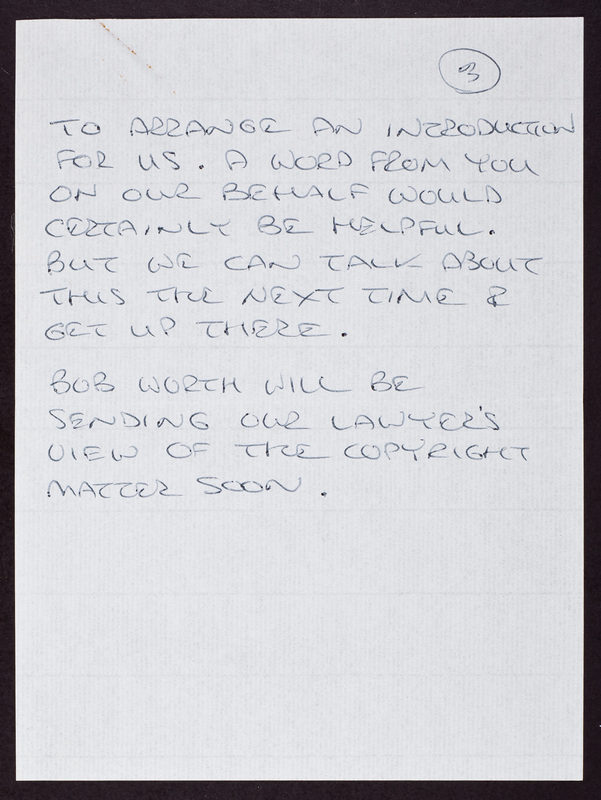 3
TO ARRANGE AN INTRODUCTION
FOR US. A WORD FROM YOU
ON OUR BEHALF WOULD
CERTAINLY BE HELPFUL.
BUT WE CAN TALK ABOUT
THIS THE NEXT TIME I
GET UP THERE.
BOB WORTH WILL BE
SENDING OUR LAWYER'S
VIEW OF THE COPYRIGHT
MATTER SOON.